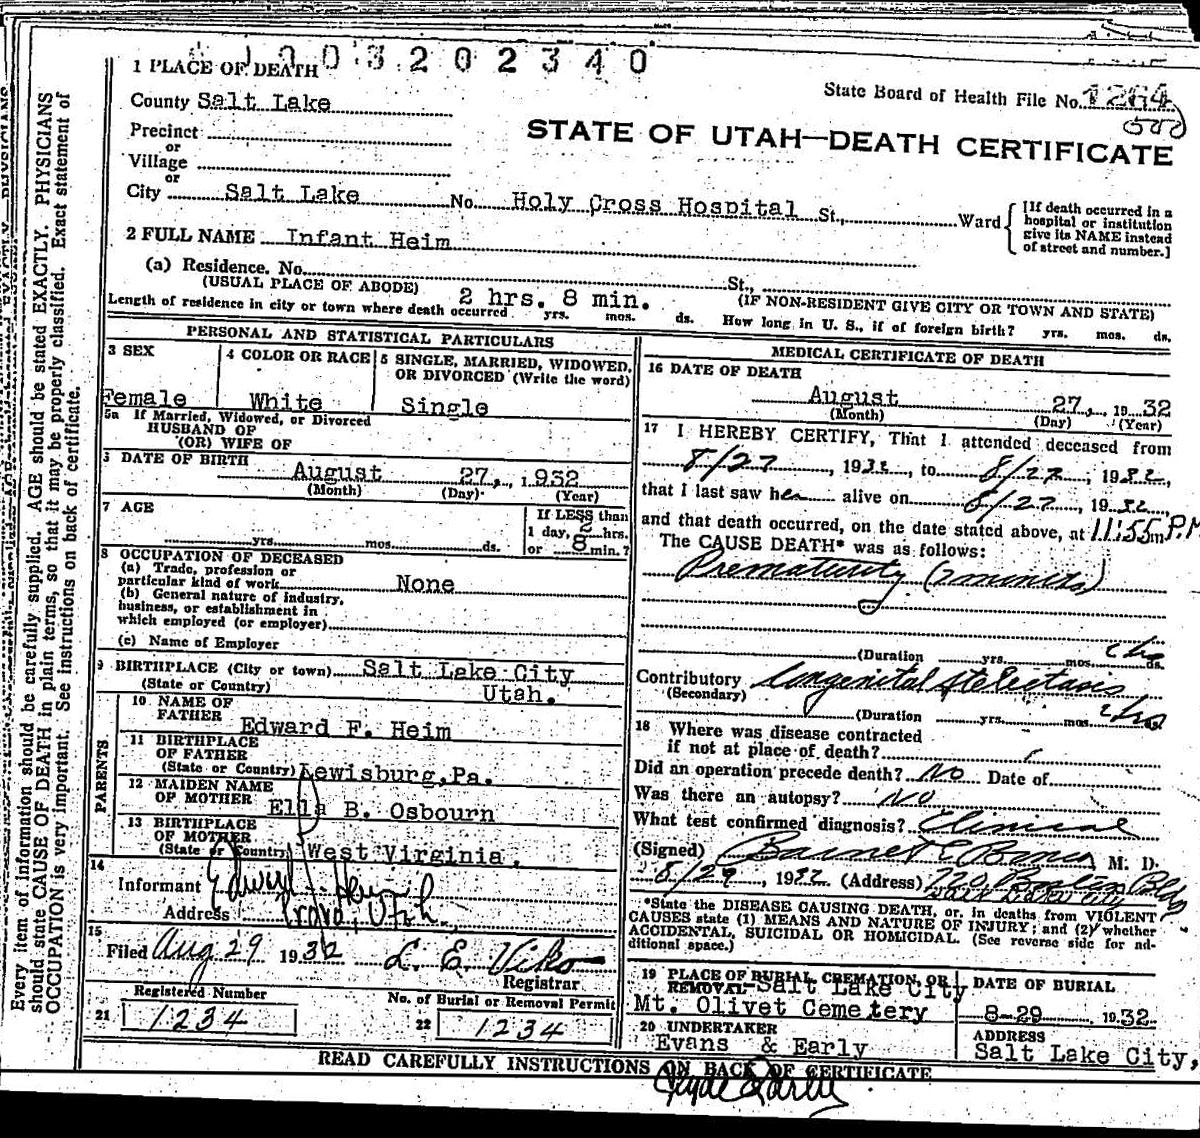 1003202340
State Board of Health File No. 1264
STATE OF UTAH—DEATH CERTIFICATE
1 PLACE OF DEATH
County Salt Lake
Precinct
or
Village
or
City Salt Lake No. Holy Cross Hospital St., Ward
[If death occurred in a hospital or institution give its NAME instead of street and number.]
2 FULL NAME Infant Heim
(a) Residence. No. St.,
(USUAL PLACE OF ABODE) (IF NON-RESIDENT GIVE CITY OR TOWN AND STATE)
Length of residence in city or town where death occurred 2 hrs. 8 min. yrs. mos. ds. How long in U. S., if of foreign birth? yrs. mos. ds.
PERSONAL AND STATISTICAL PARTICULARS
3 SEX
Female
4 COLOR OR RACE
White
5 SINGLE, MARRIED, WIDOWED, OR DIVORCED (Write the word)
Single
5a If Married, Widowed, or Divorced
HUSBAND OF
(OR) WIFE OF
DATE OF BIRTH August 27, 1932
(Month) (Day) (Year)
7 AGE
yrs. mos. ds.
If LESS than
1 day, 2 hrs.
or 8 min.?
8 OCCUPATION OF DECEASED
(a) Trade, profession or
particular kind of work None
(b) General nature of industry,
business, or establishment in
which employed (or employer)
(c) Name of Employer
9 BIRTHPLACE (City or town) Salt Lake City
(State or Country) Utah.
PARENTS
10 NAME OF
FATHER Edward F. Heim
11 BIRTHPLACE
OF FATHER
(State or Country) Lewisburg, Pa.
12 MAIDEN NAME
OF MOTHER Ella B. Osbourn
13 BIRTHPLACE
OF MOTHER
(State or Country) West Virginia.
14
Informant
Address Provo, Utah
15
Filed Aug 29 1932 L. E. Viko
Registrar
Registered Number No. of Burial or Removal Permit
21 1234 22 1234
MEDICAL CERTIFICATE OF DEATH
16 DATE OF DEATH
August 27, 1932
(Month) (Day) (Year)
17 I HEREBY CERTIFY, That I attended deceased from
8/27, 1932, to 8/27, 1932,
that I last saw her alive on 8/27, 1932,
and that death occurred, on the date stated above, at 11:55 m P.M.
The CAUSE DEATH* was as follows:
Prematurity
(Duration yrs. mos. ds.
Contributory Congenital Atelectasis
(Secondary)
(Duration yrs. mos. ds.
18 Where was disease contracted
if not at place of death?
Did an operation precede death? No Date of
Was there an autopsy? No
What test confirmed diagnosis? Clinical
(Signed) M. D.
8/29, 1932 (Address)
Salt Lake City
*State the DISEASE CAUSING DEATH, or, in deaths from VIOLENT
CAUSES state (1) MEANS AND NATURE OF INJURY; and (2) whether
ACCIDENTAL, SUICIDAL OR HOMICIDAL. (See reverse side for additional space.)
19 PLACE OF BURIAL, CREMATION, OR
REMOVAL Salt Lake City
Mt. Olivet Cemetery
DATE OF BURIAL
8-29 1932
20 UNDERTAKER
Evans & Early
ADDRESS
Salt Lake City,
READ CAREFULLY INSTRUCTIONS ON BACK OF CERTIFICATE
Every item of information should be carefully supplied. AGE should be stated EXACTLY. PHYSICIANS
should state CAUSE OF DEATH in plain terms, so that it may be properly classified. Exact statement of
OCCUPATION is very important. See instructions on back of certificate.